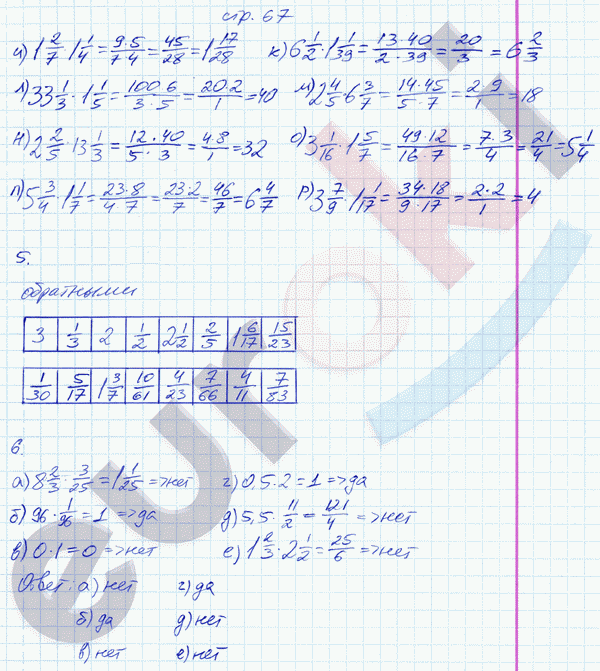 стр. 67
и) 1 2/7 · 1 1/4 = 9·5/7·4 = 45/28 = 1 17/28 к) 6 1/2 · 1 1/39 = 13·40/2·39 = 20/3 = 6 2/3
л) 33 1/3 · 1 1/5 = 100·6/3·5 = 20·2/1 = 40 м) 2 4/5 · 6 3/7 = 14·45/5·7 = 2·9/1 = 18
н) 2 2/5 · 13 1/3 = 12·40/5·3 = 4·8/1 = 32 о) 3 1/16 · 1 5/7 = 49·12/16·7 = 7·3/4 = 21/4 = 5 1/4
п) 5 3/4 · 1 1/7 = 23·8/4·7 = 23·2/7 = 46/7 = 6 4/7 р) 3 7/9 · 1 1/17 = 34·18/9·17 = 2·2/1 = 4
5.
обратными
3 1/3 2 1/2 2 1/2 2/5 1 6/17 15/23
1/30 5/17 1 3/7 10/61 4/23 7/66 4/11 7/83
6.
а) 8 2/3 · 3/25 = 1 1/25 => нет г) 0,5·2 = 1 => да
б) 96 · 1/96 = 1 => да д) 5,5 · 11/2 = 121/4 => нет
в) 0·1 = 0 => нет е) 1 2/3 · 2 1/2 = 25/6 => нет
Ответ: а) нет г) да
б) да д) нет
в) нет е) нет
euroki